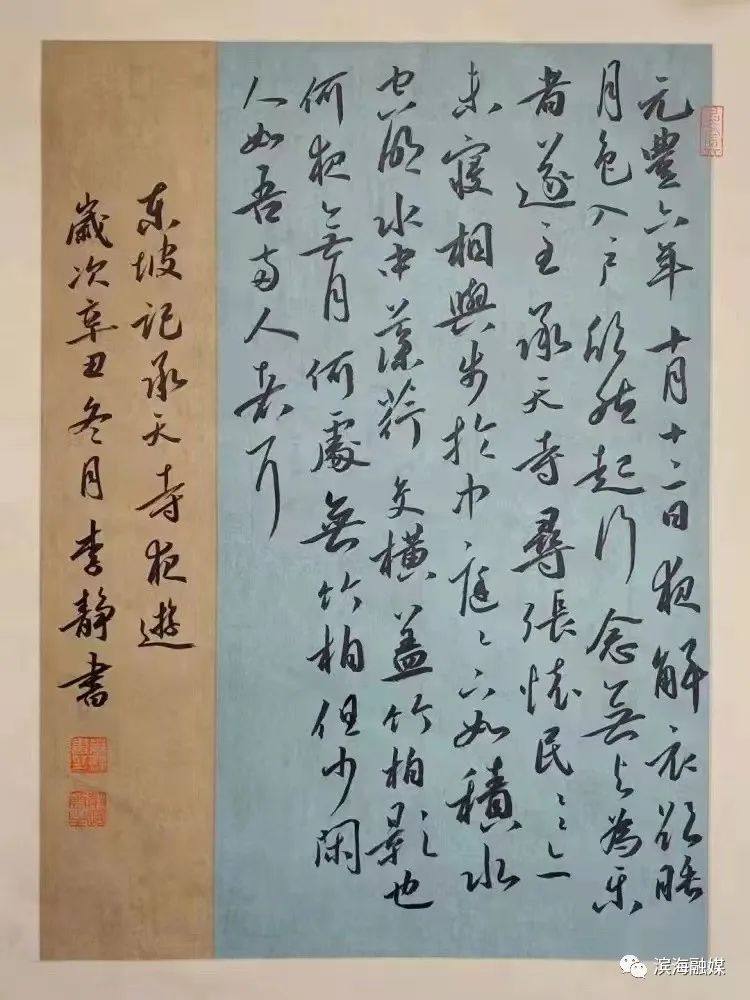 元豐六年十月十二日夜解衣欲睡
月色入戶欣然起行念無与為樂
者遂至承天寺尋張懷民〻〻亦
未寢相與步於中庭〻下如積水
空明水中藻荇交橫蓋竹柏影也
何夜無月何處無竹柏但少閑
人如吾兩人者耳
东坡記承天寺夜遊
歲次辛丑冬月李靜書
滨海融媒